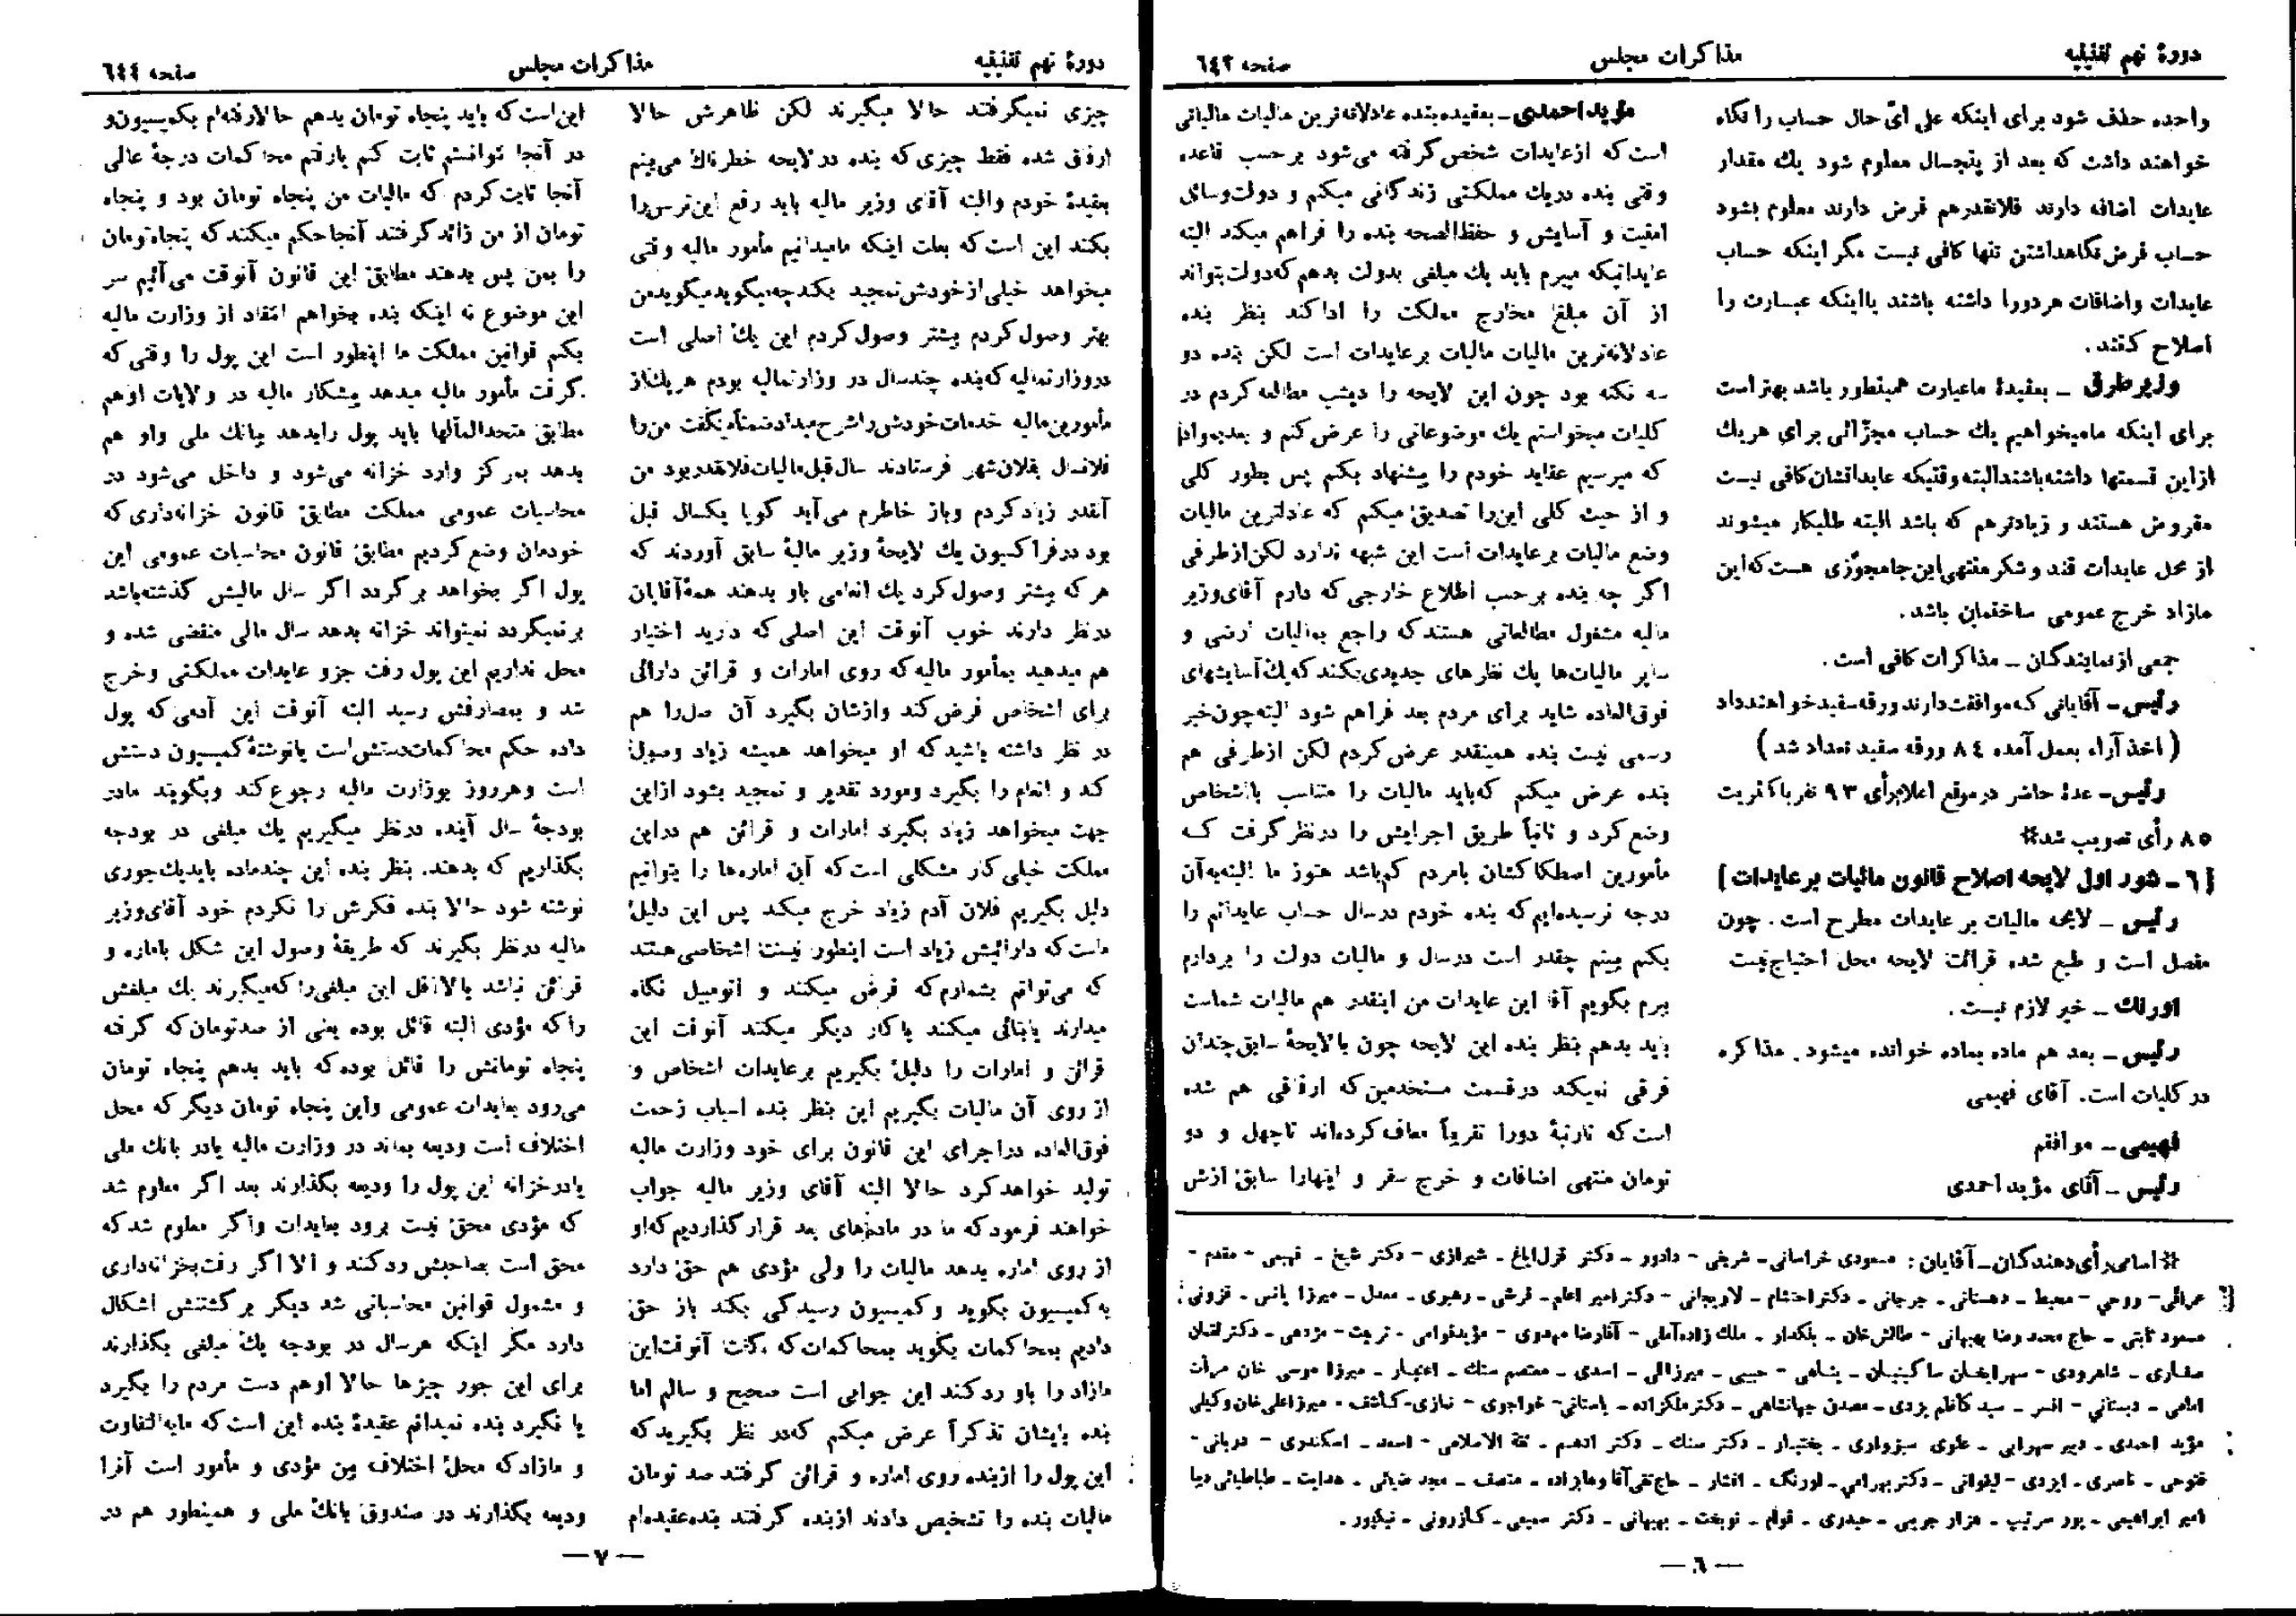 دورهٔ نهم تقنینیه
مذاکرات مجلس
صفحه ٦٤٣
واحده حذف شود برای اینکه علی ایّ حال حساب را نگاه
خواهند داشت که بعد از پنجسال معلوم شود یك مقدار
عایدات اضافه دارند فلانقدر هم قرض دارند معلوم بشود
حساب قرض نگاهداشتن تنها کافی نیست مگر اینکه حساب
عایدات و اضافات هر دو را داشته باشند یا اینکه عبارت را
اصلاح کنند.
وزیر طرق ــ بعقیدهٔ ما عبارت همینطور باشد بهتر است
برای اینکه ما میخواهیم یك حساب مجزائی برای هر یك
از این قسمتها داشته باشند البته وقتیکه عایداتشان کافی نیست
مقروض هستند و زیادتر هم که باشد البته طلبکار میشوند
از محل عایدات قند و شکر منتهی این جا مجوّزی هست که این
مازاد خرج عمومی ساختمان باشد.
جمعی از نمایندگان ــ مذاکرات کافی است.
رئیس ــ آقایانی که موافقت دارند ورقه سفید خواهند داد
( اخذ آراء بعمل آمده ٨٤ ورقه سفید تعداد شد )
رئیس ــ عدهٔ حاضر در موقع اعلام رأی ٩٣ نفر با کثریت
٨٥ رأی تصویب شد*
[ ٦ ــ شور اول لایحه اصلاح قانون مالیات بر عایدات ]
رئیس ــ لایحه مالیات بر عایدات مطرح است. چون
مفصل است و طبع شده قرائت لایحه محل احتیاج نیست
اورنك ــ خیر لازم نیست.
رئیس ــ بعد هم ماده بماده خوانده میشود. مذاکره
در کلیات است. آقای فهیمی
فهیمی ــ موافقم
رئیس ــ آقای مؤید احمدی
مؤید احمدی ــ بعقیده بنده عادلانه‌ترین مالیات مالیاتی
است که از عایدات شخص گرفته می‌شود بر حسب قاعده
وقتی بنده در یك مملکتی زندگانی میکنم و دولت وسائل
امنیت و آسایش و حفظ‌الصحه بنده را فراهم میکند البته
عایداتیکه میبرم باید یك مبلغی بدولت بدهم که دولت بتواند
از آن مبلغ مخارج مملکت را ادا کند بنظر بنده
عادلانه‌ترین مالیات مالیات بر عایدات است لکن بنده دو
سه نکته بود چون این لایحه را دیشب مطالعه کردم در
کلیات میخواستم یك موضوعاتی را عرض کنم و بعد بمواد
که میرسیم عقاید خودم را پیشنهاد بکنم پس بطور کلی
و از حیث کلی این را تصدیق میکنم که عادلترین مالیات
وضع مالیات بر عایدات است این شبهه ندارد لکن از طرفی
اگر چه بنده بر حسب اطلاع خارجی که دارم آقای وزیر
مالیه مشغول مطالعاتی هستند که راجع بمالیات ارضی و
سایر مالیات‌ها یك نظرهای جدیدی بکنند که یك آسایشهای
فوق‌العاده شاید برای مردم بعد فراهم شود البته چون خبر
رسمی نیست بنده همینقدر عرض کردم لکن از طرفی هم
بنده عرض میکنم که باید مالیات را متناسب با اشخاص
وضع کرد و ثانیاً طریق اجرایش را در نظر گرفت که
مأمورین اصطکاکشان با مردم کم باشد هنوز ما البته به آن
درجه نرسیده‌ایم که بنده خودم در سال حساب عایداتم را
بکنم ببینم چقدر است در سال و مالیات دولت را بردارم
ببرم بگویم آقا این عایدات من اینقدر هم مالیات شماست
باید بدهم بنظر بنده این لایحه چون با لایحهٔ سابق چندان
فرقی نمیکند در قسمت مستخدمین که ارفاقی هم شده
است که تا رتبهٔ دو را تقریباً معاف کرده‌اند تا چهل و دو
تومان منتهی اضافات و خرج سفر و اینها را سابق ازش
*اسامی رأی دهندگان ــ آقایان: مسعودی خراسانی ـ شریفی ـ دادور ـ دکتر قزل ایاغ ـ شیرازی ـ دکتر شیخ ـ فهیمی ـ مقدم ـ
عراقی ـ روحی ـ محیط ـ دهستانی ـ جرجانی ـ دکتر احتشام ـ لاریجانی ـ دکتر امیر اعلم ـ قرشی ـ رهبری ـ معدل ـ میرزا یانس ـ قزونی
مسعود ثابتی ـ حاج محمد رضا بهبهانی ـ طالش خان ـ بلکدار ـ ملك زاده آملی ـ آقا رضا مهدوی ـ مؤید قوامی ـ تربیت ـ مژدهی ـ دکتر لقمان
صفاری ـ شاهرودی ـ سهراب خان ساکینیان ـ پناهی ـ حبیبی ـ میرزائی ـ اسدی ـ معتصم سنك ـ اعتبار ـ میرزا موسی خان مرآت
امامی ـ دبستانی ـ افسر ـ سید کاظم یزدی ـ مصدق جهانشاهی ـ دکتر ملکزاده ـ باستانی ـ خواجوی ـ نمازی ـ کاشف ـ میرزا علی خان وکیلی
مؤید احمدی ـ دبیر سهرابی ـ علوی سبزواری ـ بختیار ـ دکتر سنك ـ دکتر ادهم ـ ثقة الاسلامی ـ اسعد ـ اسکندری ـ دربانی ـ
فتوحی ـ ناصری ـ ایزدی ـ لیقوانی ـ دکتر بهرامی ـ اورنگ ـ افشار ـ حاج تقی آقا وهابزاده ـ منصف ـ مجد ضیائی ـ هدایت ـ طباطبائی دیبا
امیر ابراهیمی ـ پور سرتیپ ـ هزار جریبی ـ حیدری ـ قوام ـ نوبخت ـ بهبهانی ـ دکتر سمیعی ـ کازرونی ـ نیکپور.
ــ ٦ ــ
دورهٔ نهم تقنینیه
مذاکرات مجلس
صفحه ٦٤٤
چیزی نمیگرفتند حالا میگیرند لکن ظاهرش حالا
ارفاق شده فقط چیزی که بنده در لایحه خطرناك می‌بینم
بعقیدهٔ خودم والبته آقای وزیر مالیه باید رفع این ترس را
بکند این است که بعلت اینکه ما میدانیم مأمور مالیه وقتی
میخواهد خیلی از خودش تمجید بکند چه میگوید میگوید من
بهتر وصول کردم بیشتر وصول کردم این یك اصلی است
در وزارتمالیه که بنده چند سال در وزارتمالیه بودم هر یك از
مأمورین مالیه خدمات خودش را شرح میداد ضمناً میگفت من را
فلانسال بفلان شهر فرستادند سال قبل مالیات فلانقدر بود من
آنقدر زیاد کردم و باز خاطرم می‌آید گویا یکسال قبل
بود در فراکسیون یك لایحهٔ وزیر مالیهٔ سابق آوردند که
هر که بیشتر وصول کرد یك انعامی باو بدهند همهٔ آقایان
در نظر دارند خوب آنوقت این اصلی که دارید اختیار
هم میدهید بمأمور مالیه که روی امارات و قرائن دارائی
برای اشخاص فرض کند و ازشان بگیرد آن اصل را هم
در نظر داشته باشید که او میخواهد همیشه زیاد وصول
کند و انعام را بگیرد و مورد تقدیر و تمجید بشود از این
جهت میخواهد زیاد بگیرد امارات و قرائن هم در این
مملکت خیلی کار مشکلی است که آن اماره‌ها را بتوانیم
دلیل بگیریم فلان آدم زیاد خرج میکند پس این دلیل
است که دارائیش زیاد است اینطور نیست اشخاصی هستند
که می‌توانم بشمارم که قرض میکنند و اتومبیل نگاه
میدارند یا بنائی میکنند یا کار دیگر میکنند آنوقت این
قرائن و امارات را دلیل بگیریم بر عایدات اشخاص و
از روی آن مالیات بگیریم این بنظر بنده اسباب زحمت
فوق‌العاده در اجرای این قانون برای خود وزارت مالیه
تولید خواهد کرد حالا البته آقای وزیر مالیه جواب
خواهند فرمود که ما در ماده‌های بعد قرار گذاردیم که او
از روی اماره بدهد مالیات را ولی مؤدی هم حق دارد
به کمیسیون بگوید و کمیسیون رسیدگی بکند باز حق
دادیم بمحاکمات بگوید بمحاکمات که گفت آنوقت این
مازاد را باو رد کند این جوابی است صحیح و سالم اما
بنده بایشان تذکراً عرض میکنم که در نظر بگیرید که
این پول را از بنده روی اماره و قرائن گرفتند صد تومان
مالیات بنده را تشخیص دادند از بنده گرفتند بنده عقیده‌ام
این است که باید پنجاه تومان بدهم حالا رفته‌ام بکمیسیون و
در آنجا توانستم ثابت کنم یا رفتم محاکمات درجهٔ عالی
آنجا ثابت کردم که مالیات من پنجاه تومان بود و پنجاه
تومان از من زائد گرفتند آنجا حکم میکنند که پنجاه تومان
را بمن پس بدهند مطابق این قانون آنوقت می‌آئیم سر
این موضوع نه اینکه بنده بخواهم انتقاد از وزارت مالیه
بکنم قوانین مملکت ما اینطور است این پول را وقتی که
گرفت مأمور مالیه میدهد پیشکار مالیه در ولایات او هم
مطابق متحدالمآلها باید پول را بدهد ببانك ملی و او هم
بدهد بمرکز وارد خزانه می‌شود و داخل می‌شود در
محاسبات عمومی مملکت مطابق قانون خزانه‌داری که
خودمان وضع کردیم مطابق قانون محاسبات عمومی این
پول اگر بخواهد برگردد اگر سال مالیش گذشته باشد
بر نمیگردد نمیتواند خزانه بدهد سال مالی منقضی شده و
محل نداریم این پول رفت جزو عایدات مملکتی و خرج
شد و بمصارفش رسید البته آنوقت این آدمی که پول
داده حکم محاکمات دستش است یا نوشتهٔ کمیسیون دستش
است و هر روز بوزارت مالیه رجوع کند و بگویند ما در
بودجهٔ سال آینده در نظر میگیریم یك مبلغی در بودجه
بگذاریم که بدهند. بنظر بنده این چند ماده باید یك جوری
نوشته شود حالا بنده فکرش را نکردم خود آقای وزیر
مالیه در نظر بگیرند که طریقهٔ وصول این شکل باماره و
قرائن نباشد یا لااقل این مبلغی را که میگیرند یك مبلغش
را که مؤدی البته قائل بوده یعنی از صد تومان که گرفته
پنجاه تومانش را قائل بوده که باید بدهم پنجاه تومان
می‌رود بعایدات عمومی و این پنجاه تومان دیگر که محل
اختلاف است ودیعه بماند در وزارت مالیه یا در بانك ملی
یا در خزانه این پول را ودیعه بگذارند بعد اگر معلوم شد
که مؤدی محق نیست برود بعایدات و اگر معلوم شد که
محق است بصاحبش رد کنند و الا اگر رفت بخزانه‌داری
و مشمول قوانین محاسباتی شد دیگر برگشتنش اشکال
دارد مگر اینکه هر سال در بودجه یك مبلغی بگذارند
برای این جور چیزها حالا او هم دست مردم را بگیرد
یا نگیرد بنده نمیدانم عقیدهٔ بنده این است که مابه‌التفاوت
و مازاد که محل اختلاف بین مؤدی و مأمور است آنرا
ودیعه بگذارند در صندوق بانك ملی و همینطور هم در
ــ ٧ ــ